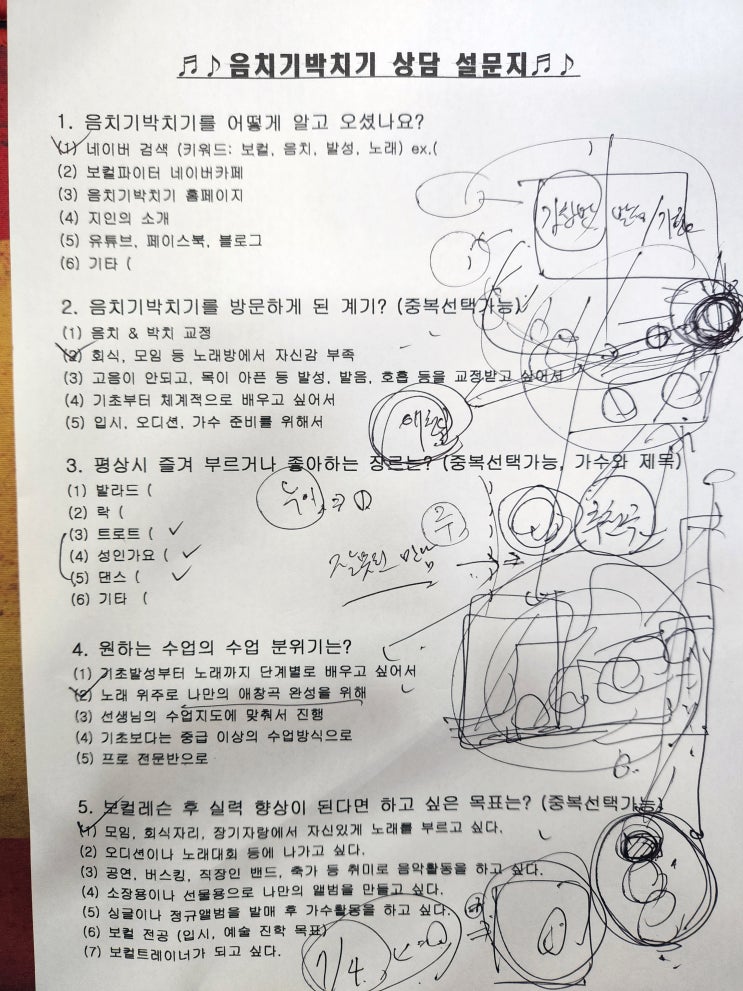 ♬♪음치기박치기 상담 설문지♬♪
1. 음치기박치기를 어떻게 알고 오셨나요?
(1) 네이버 검색 (키워드: 보컬, 음치, 발성, 노래) ex.( )
(2) 보컬파이터 네이버카페
(3) 음치기박치기 홈페이지
(4) 지인의 소개
(5) 유튜브, 페이스북, 블로그
(6) 기타 (
2. 음치기박치기를 방문하게 된 계기? (중복선택가능)
(1) 음치 & 박치 교정
(2) 회식, 모임 등 노래방에서 자신감 부족
(3) 고음이 안되고, 목이 아픈 등 발성, 발음, 호흡 등을 교정받고 싶어서
(4) 기초부터 체계적으로 배우고 싶어서
(5) 입시, 오디션, 가수 준비를 위해서
3. 평상시 즐겨 부르거나 좋아하는 장르는? (중복선택가능, 가수와 제목)
(1) 발라드 (
(2) 락 (
(3) 트로트 ( ✓
(4) 성인가요 ( ✓
(5) 댄스 ( ✓
(6) 기타 (
추천곡
잘못된 만남
4. 원하는 수업의 수업 분위기는?
(1) 기초발성부터 노래까지 단계별로 배우고 싶어서
(2) 노래 위주로 나만의 애창곡 완성을 위해
(3) 선생님의 수업지도에 맞춰서 진행
(4) 기초보다는 중급 이상의 수업방식으로
(5) 프로 전문반으로
5. 보컬레슨 후 실력 향상이 된다면 하고 싶은 목표는? (중복선택가능)
(1) 모임, 회식자리, 장기자랑에서 자신있게 노래를 부르고 싶다.
(2) 오디션이나 노래대회 등에 나가고 싶다.
(3) 공연, 버스킹, 직장인 밴드, 축가 등 취미로 음악활동을 하고 싶다.
(4) 소장용이나 선물용으로 나만의 앨범을 만들고 싶다.
(5) 싱글이나 정규앨범을 발매 후 가수활동을 하고 싶다.
(6) 보컬 전공 (입시, 예술 진학 목표)
(7) 보컬트레이너가 되고 싶다.
1/4